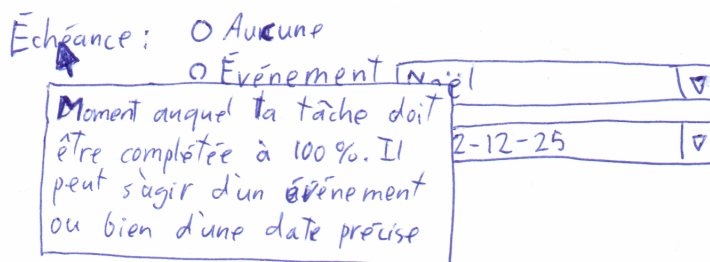 Échéance : O Aucune
O Événement Noël
Moment auquel la tâche doit
être complétée à 100 %. Il
2-12-25
peut s'agir d'un événement
ou bien d'une date précise